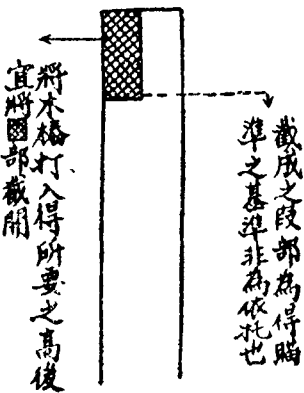 截成之段部為得瞄
準之基準非為依托也
將木樁打入得所要之高後
宜將▩部截開